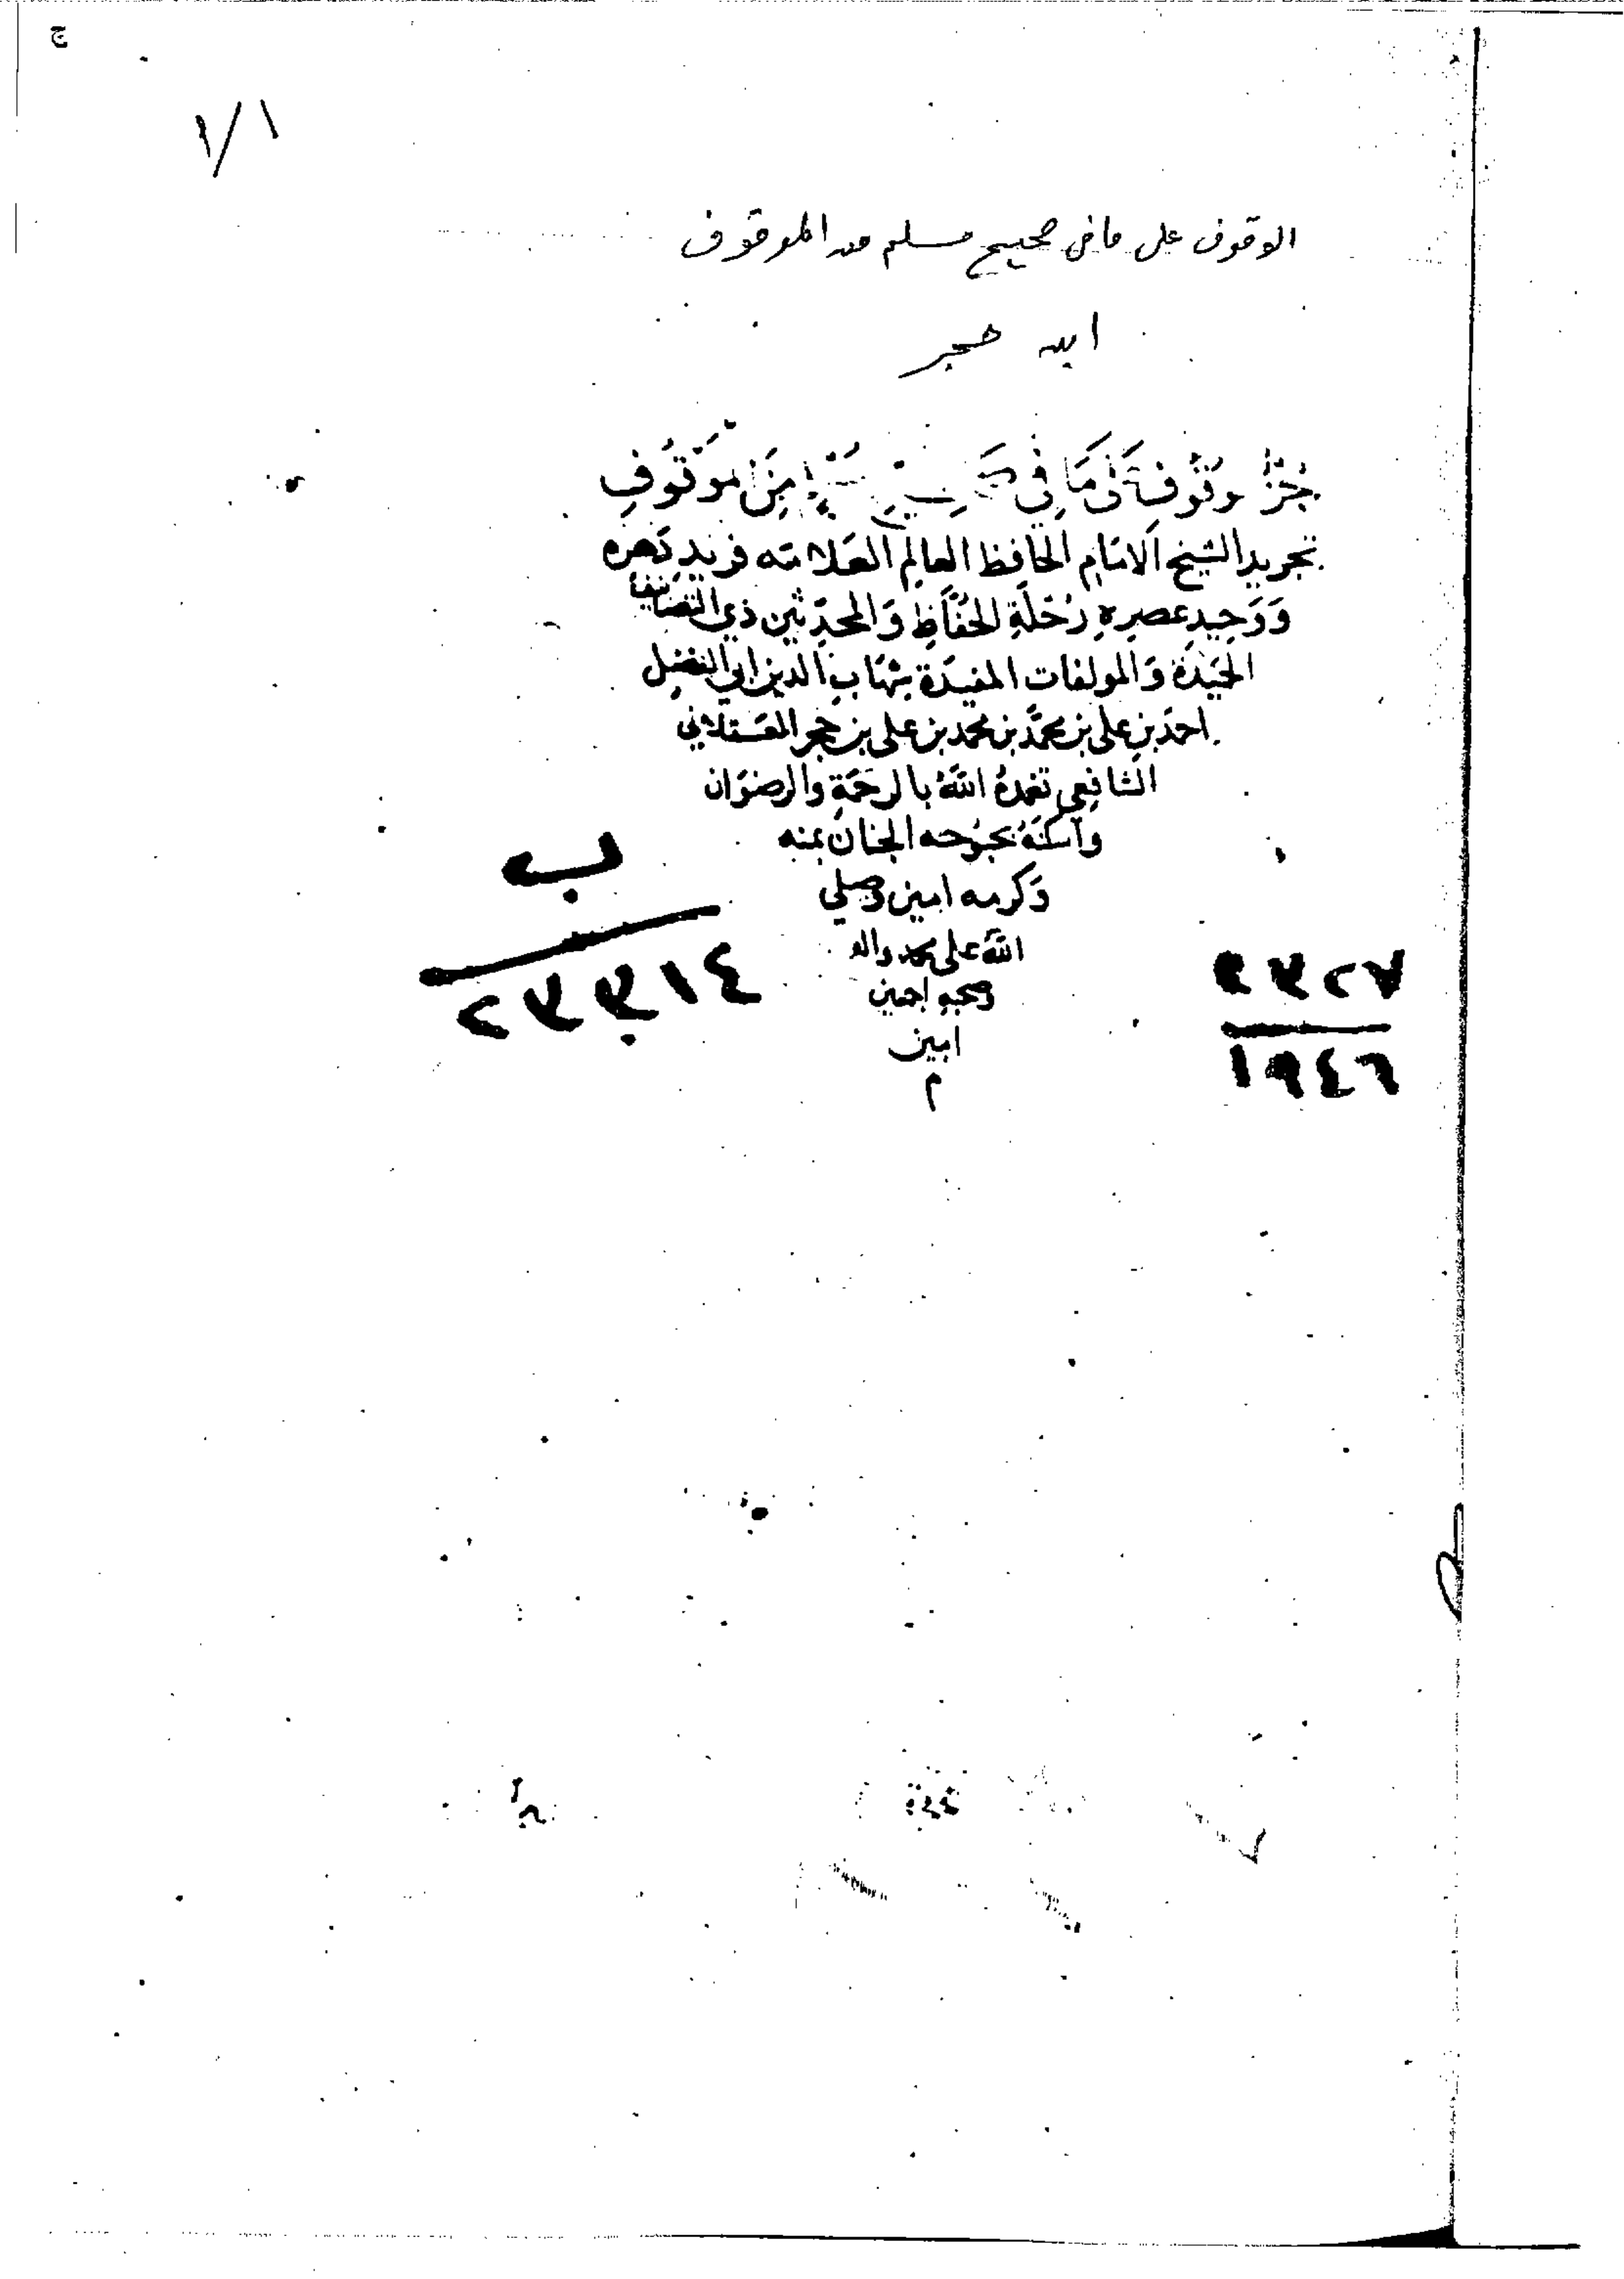 ج
١/١
الوقوف على ما فى صحيح مسلم من الموقوف
ابن حجر
جُزْء وقُوف عَلَى مَا فِي صَحِيحِ مُسْلِمٍ مِنَ الموقُوفِ
تجريد الشيخ الامَامِ الحَافِظ العالِمِ العَلامَه فريدِ دَهرِه
وَوَحِيدِ عصرِهِ رُحْلَةِ الحُفَّاظِ وَالمحدِّثين ذي التصَانِيفِ
الجَيّدَة وَالمولفات المفيدَة شِهَابِ الدين ابي الفضل
احمدَ بن على بن محمَّد بن محمد بن على بن حجر العَسْقلاني
الشافِعي تغمدهُ اللهُ بالرحمَةِ والرضوَان
وَاسكنَهُ بحبُوحه الجنان بمنه
وَكرمه امين وصلى
اللهُ على محمد واله
وصحبه اجمعين
امين
م
ب
٢٣٣١٤
٩٣٢٧
١٩٤٦